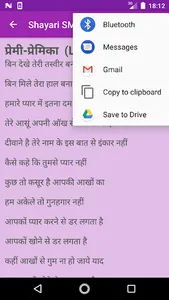 18:12
Shayari SM
Bluetooth
Messages
Gmail
Copy to clipboard
Save to Drive
प्रेमी-प्रेमिका (L
बिन देखे तेरी तस्वीर बन
बिन मिले तेरा हाल बता
हमारे प्यार में इतना दम
तेरे आसूं अपनी आँख
दीवाने है तेरे नाम के इस बात से इंकार नहीं
कैसे कहे कि तुमसे प्यार नहीं
कुछ तो कसूर है आपकी आखों का
हम अकेले तो गुनहगार नहीं
आपको प्यार करने से डर लगता है
आपको खोने से डर लगता है
कहीं आखों से गुम ना हो जाये याद